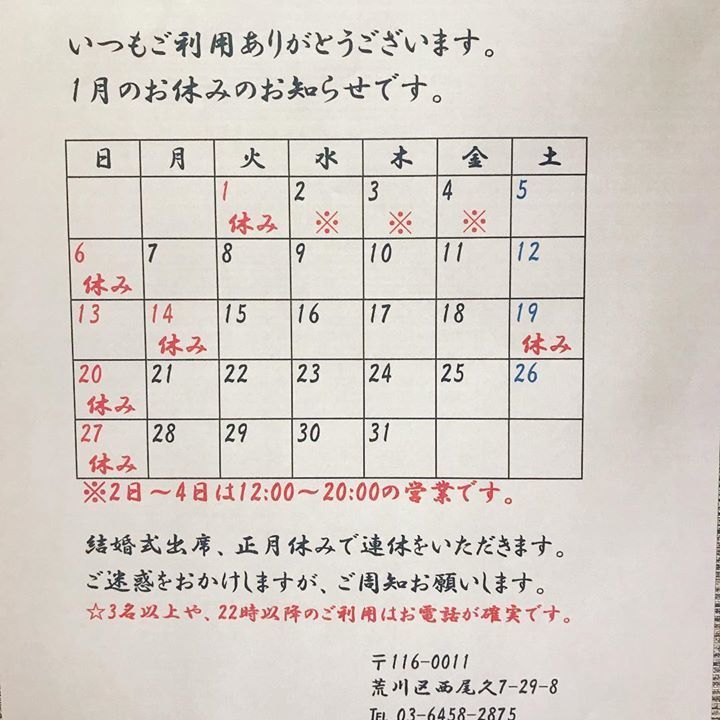 いつもご利用ありがとうございます。
1月のお休みのお知らせです。
日 月 火 水 木 金 土
1 2 3 4 5
休み ※ ※ ※
6 7 8 9 10 11 12
休み
13 14 15 16 17 18 19
休み 休み
20 21 22 23 24 25 26
休み
27 28 29 30 31
休み
※2日～4日は12:00～20:00の営業です。
結婚式出席、正月休みで連休をいただきます。
ご迷惑をおかけしますが、ご周知お願いします。
☆3名以上や、22時以降のご利用はお電話が確実です。
〒116-0011
荒川区西尾久7-29-8
TEL 03-6458-2875